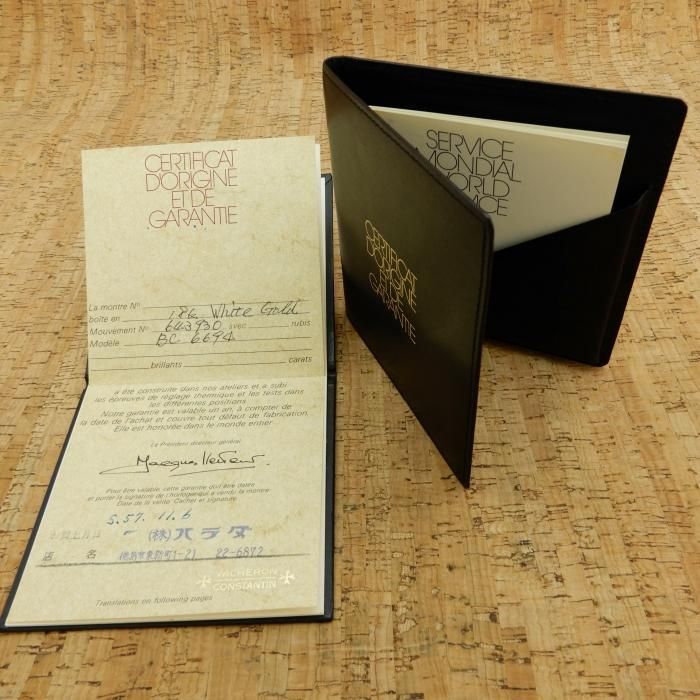 CERTIFICAT
D'ORIGINE
ET DE
GARANTIE
La montre Nº
boîte en 18k White Gold
Mouvement Nº 643930 avec rubis
Modèle BC 6694
brillants carats
a été construite dans nos ateliers et a subi
les épreuves de réglage thermique et les tests dans
les différentes positions.
Notre garantie est valable un an, à compter de
la date de l'achat et couvre tout défaut de fabrication.
Elle est honorée dans le monde entier.
Le Président directeur général
Pour être valable, cette garantie doit être datée
et porter la signature de l'horloger qui a vendu la montre.
Date de la vente. Cachet et signature
S.57. 11.6
お買上月日 (株)ハラダ
店名 徳島市東新町1-21 22-6872
VACHERON
CONSTANTIN
Translations on following pages
CERTIFICAT
D'ORIGINE
ET DE
GARANTIE
SERVICE
MONDIAL
WORLD